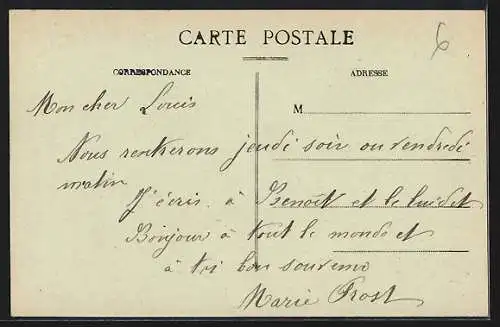 CARTE POSTALE
CORRESPONDANCE
ADRESSE
6
M
Mon cher Louis
Nous rentrerons jeudi soir ou vendredi
matin
J'écris à Benoît et le lui dit
Bonjour à tout le monde et
à toi bon souvenir
Marie Prost